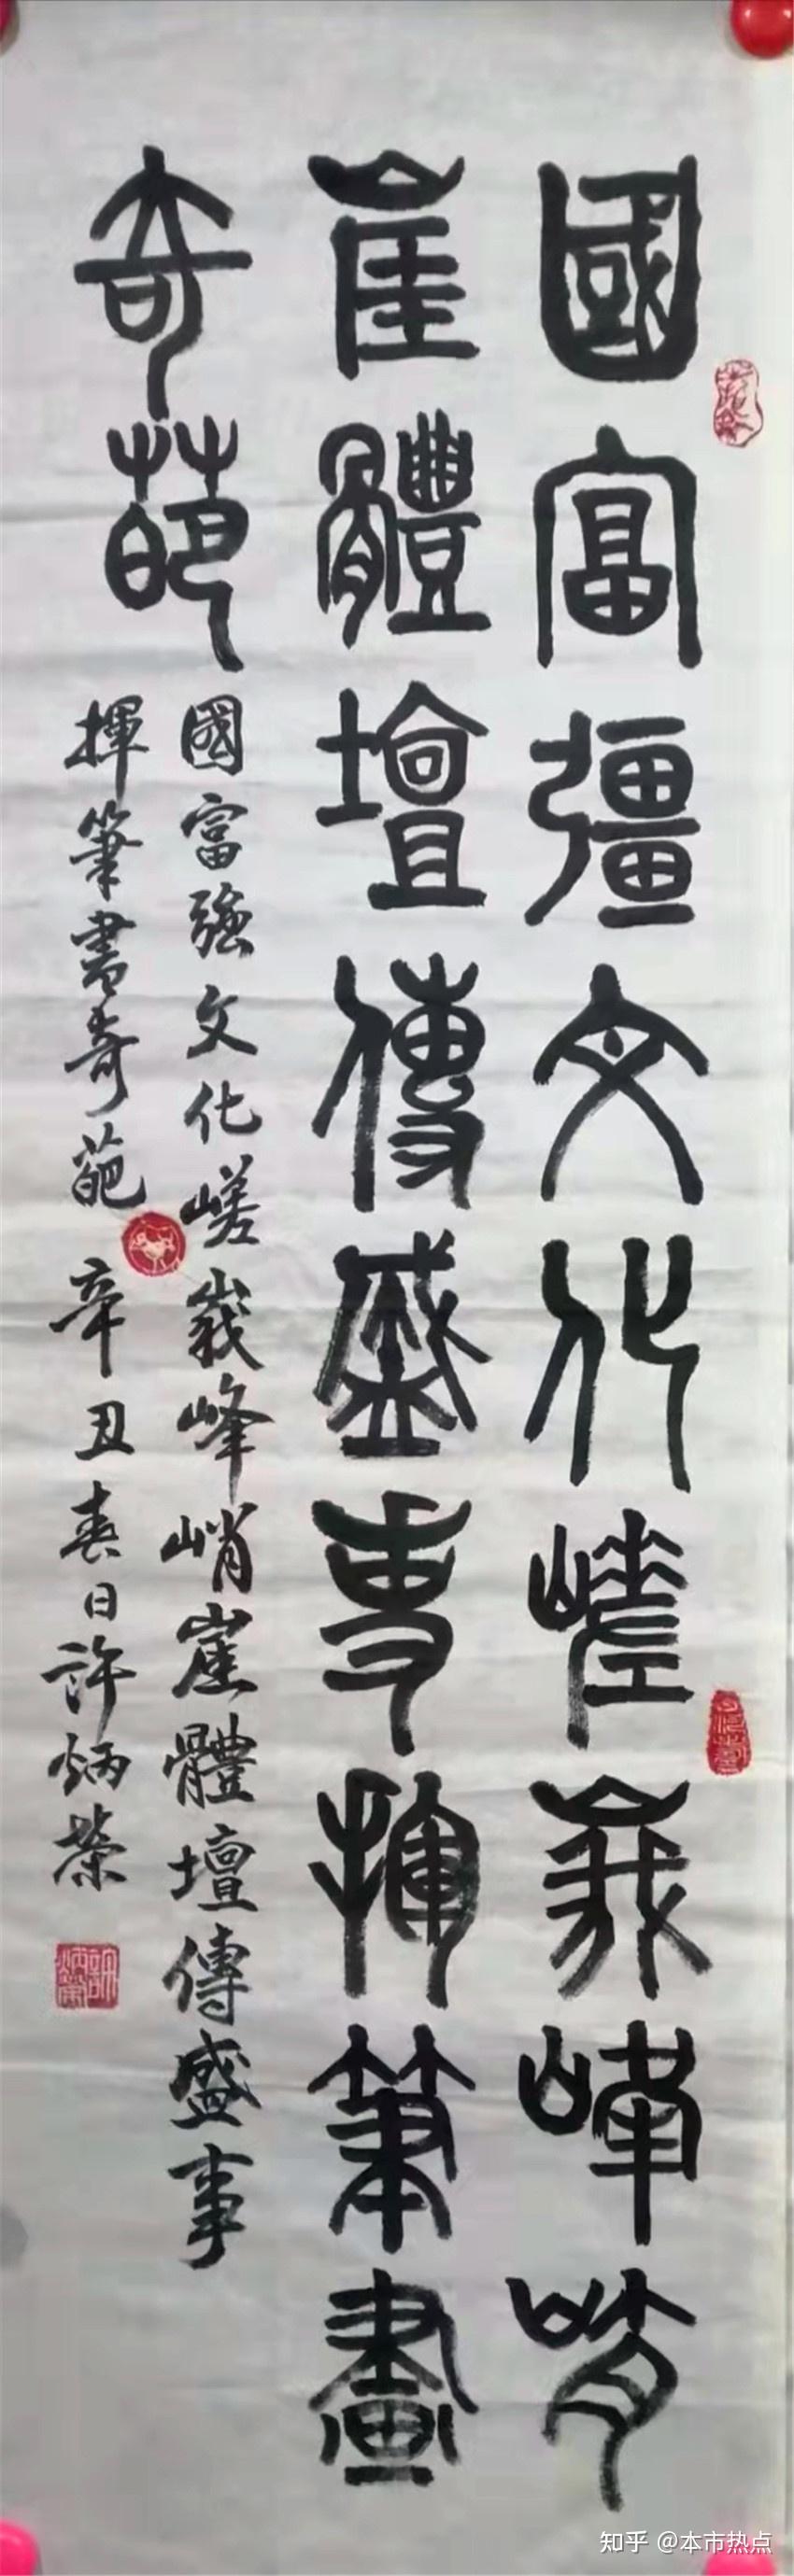 國富彊文化嵯峩峰峭
崖體壇傳盛事揮筆畫
奇葩
國富強文化嵯峩峰峭崖體壇傳盛事
揮筆書奇葩 辛丑春日許炳榮
許炳榮
知乎 @本市热点